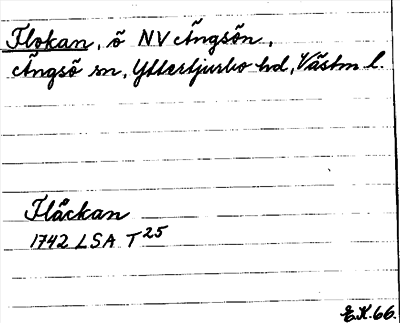 Flokan, ö NV Ängsön,
Ängsö sn, Yttertjurbo hd, Västm l.
Flåckan
1742 LSA T 25
E.K. 66.